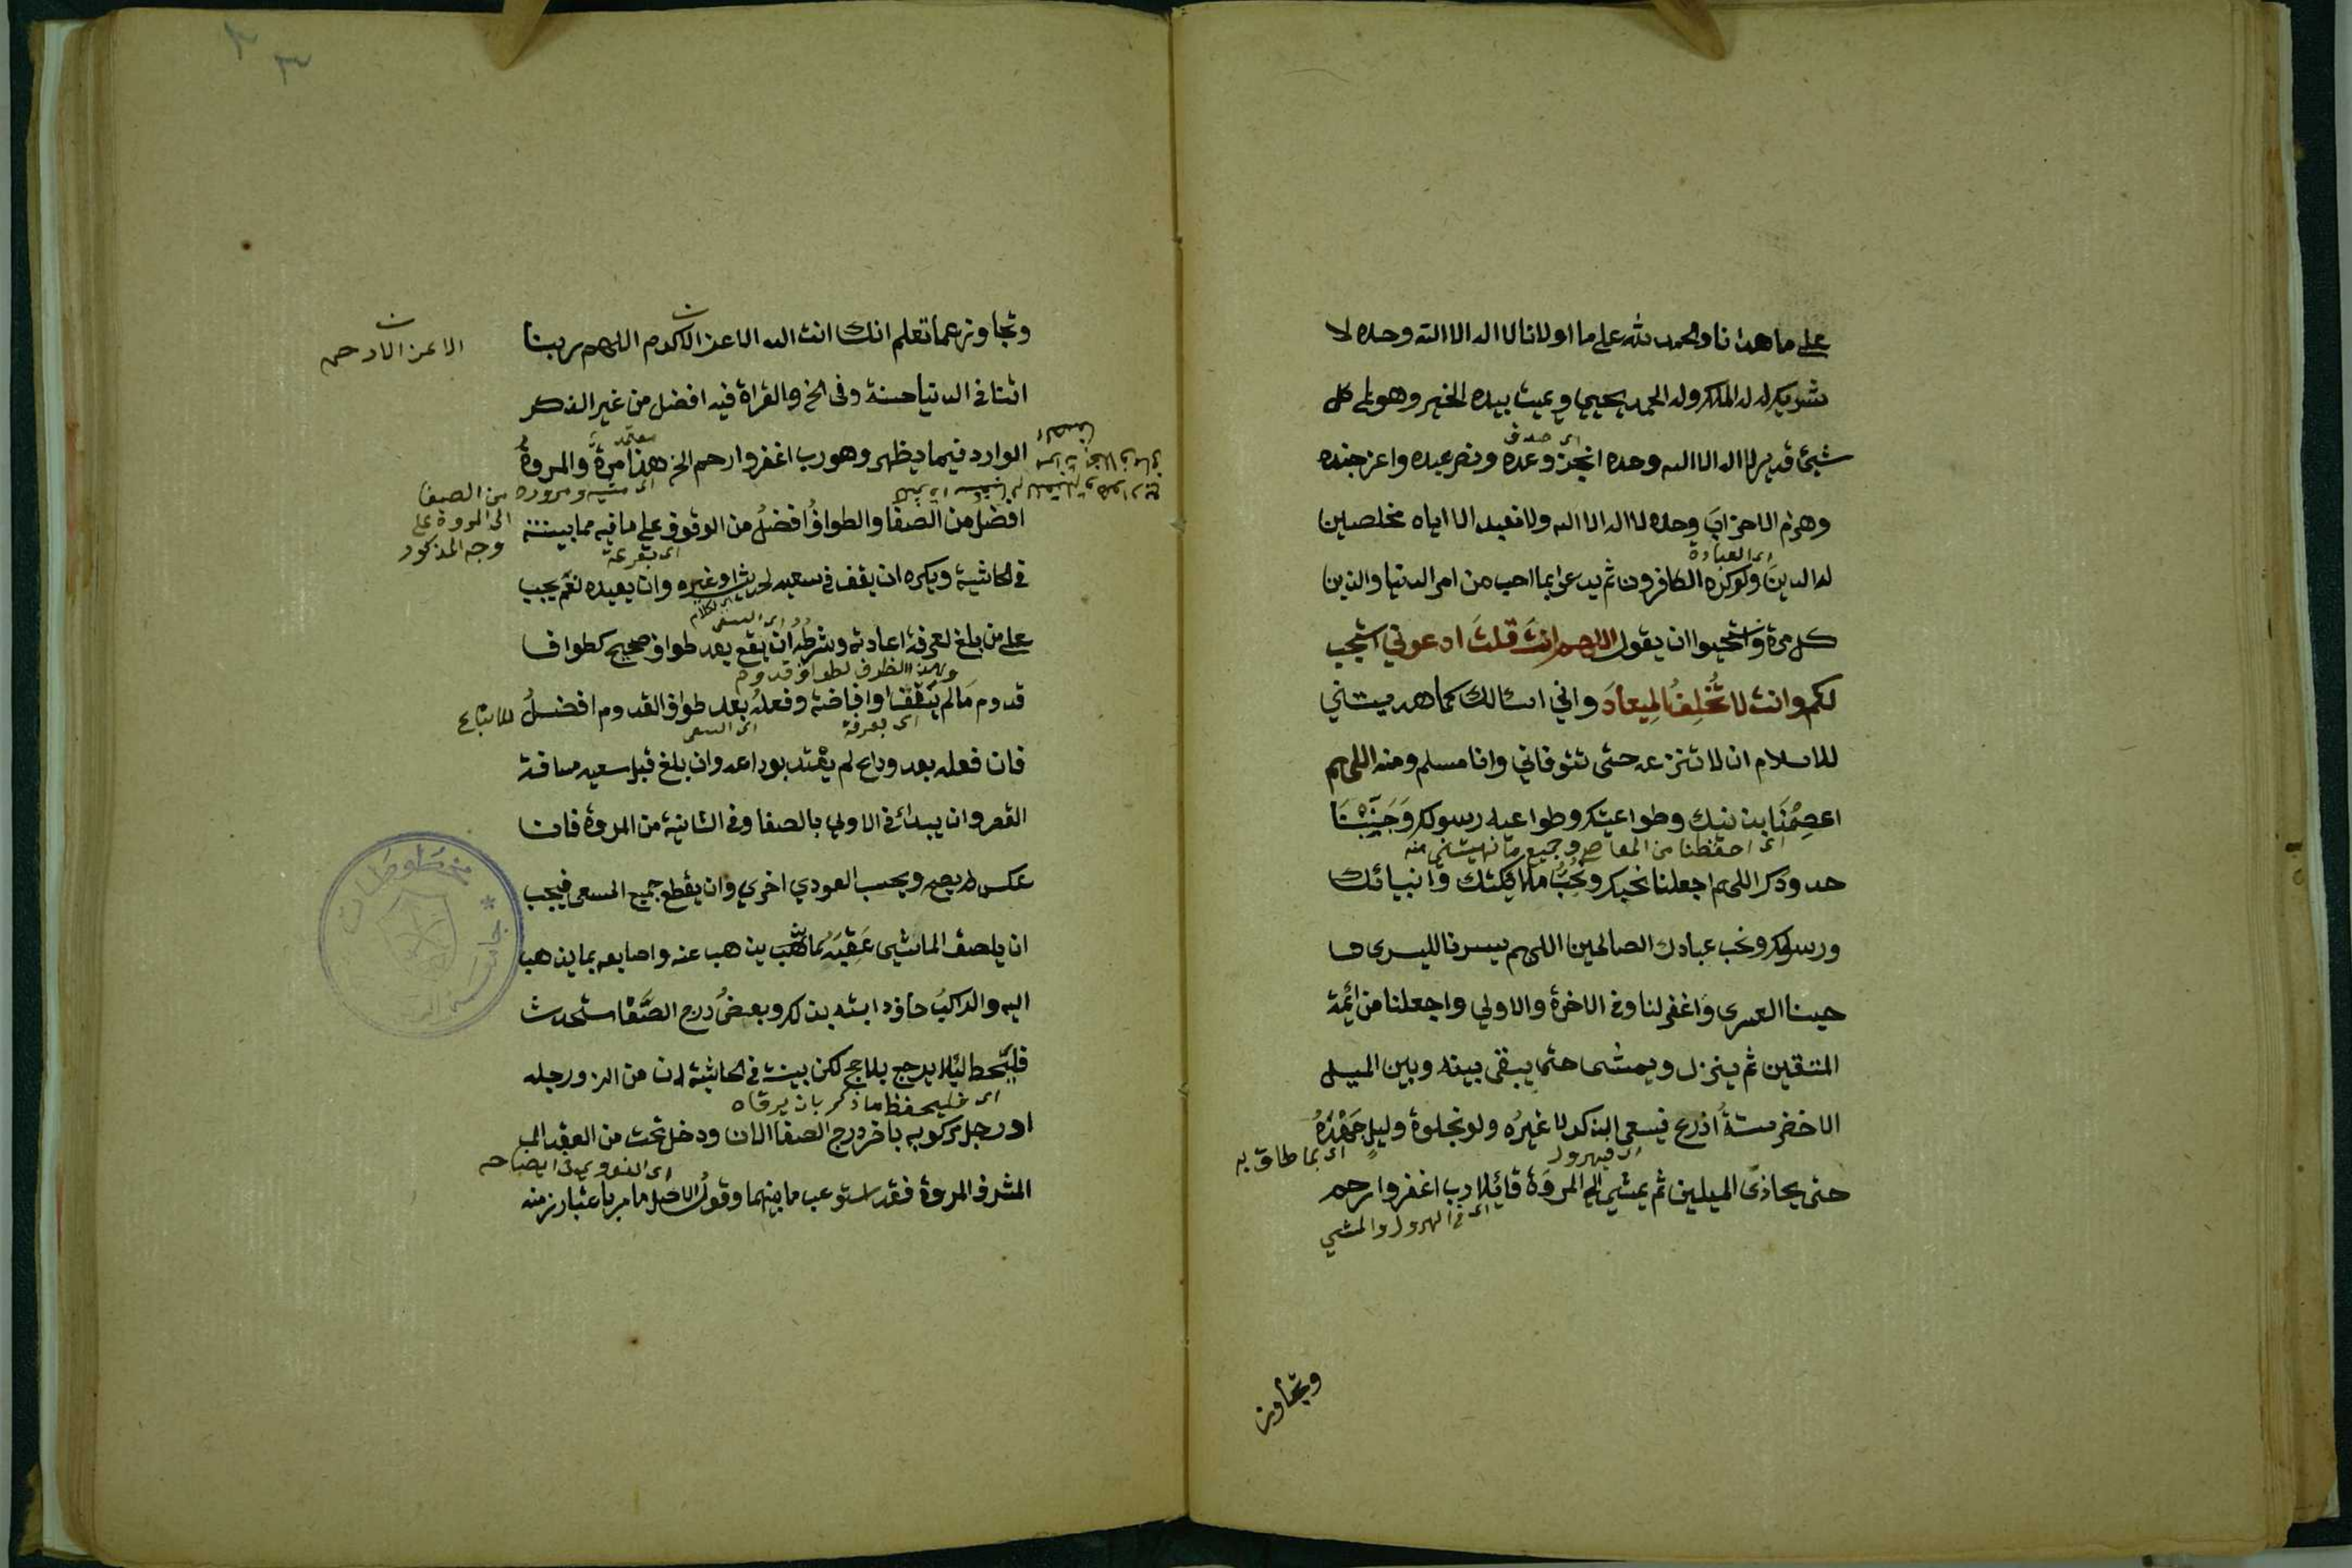 على ما هدانا والحمد لله على ما اولانا لا اله الا الله وحده لا
شريك له له الملك وله الحمد يحيي ويميت بيده الخير وهو على كل
اى صدق
شيئ قدير لا اله الا الله وحده انجز وعده ونصر عبده واعز جنده
وهزم الاحزاب وحده لا اله الا الله ولا نعبد الا اياه مخلصين
اى العبادة
له الدينَ ولو كره الكافرون ثم يدعوا بما احب من امر الدنيا والدين
كل مرة واستحبوا ان يقول اللهم انتَ قلتَ ادعوني استجب
لكم وانت لا تُخلِفُ الميعادَ واني اسالك كما هديتني
للاسلام ان لا تنزعه حتى تتوفاني وانا مسلم ومنه اللهم
اعصِمْنَا بدينك وطواعيتك وطواعية رسولك وَجَنِّبْنَا
اى احفظنا من المعاصي وجميع ما نهيتني منه
حدودك اللهم اجعلنا نحبك ونُحِبُّ ملائكتك وانبيائك
ورسولك ونحب عبادك الصالحين اللهم يسرنا لليسرى و
جنبنا العسرى وَاغفر لنا وفى الاخرة والاولي واجعلنا من ائمة
المتقين ثم ينزل ويمشى حتى يبقى بينه وبين الميل
الاخضر ستةُ اذرع فيسعى الذكر لا غيرُه ولو بخلوة وليلٍ جَهْدَهُ
اى فيهرول
اى بما طاق به
حتى يحاذى الميلين ثم يمشي الى المروَة قائلا رب اغفر وارحم
اى فى الهرول والمشي
وتجاوز
وتجاوز عما تعلم انك انت الله الاعز الاكرم اللهم ربنا
الاعز الارحم
اتنا فى الدنيا حسنة وفى الخ والقراة فيه افضل من غير الذكر
معتمد
الوارد فيما يظهر وهو رب اغفر وارحم الخ هذا مرة والمروةُ
اى مشيه ومروره من الصفا
الى المروة على
وجه المذكور
افضل من الصفا والطوافُ افضلُ من الوقوف على ما فيه مما بينته
اى بقرعة
فى الحاشية ويكره ان يقف فى سعيه لحديث او غيره وان يعيده نعم يجب
اى السعى
على من بلغ لعرفة اعادته وشرطُه ان يقع بعد طواف صحيح كطواف
قدوم مَا لم يَقِفْ او افاضة وفعلُه بعد طواف القدوم افضلُ للاتباع
اى بعرفة
اى السعى
فان فعله بعد وداع لم يعْتد بوداعه وان بلغ قبل سعيه مسافة
القصر وان يبدأ فى الاولى بالصفا وفى الثانية من المروة فان
عكس لم يصح ويحسب العود اخرى وان يقطع جميع المسعى فيجب
ان يلصق الماشي عَقِبَه بما يذهب عنه واصابعه بما يذهب
اليه والراكبُ حافر دابته بذلك وبعضُ درج الصَّفا مستحدث
فليَّحتط لئلا يدرج بلا حج لكن بينت فى الحاشية ان من الزق رجله
اى فليحفظ ما ذكر بان يرقاه
او رجل مركوبه باخر درج الصفا الان ودخل تحت من العقد
اى النووي فى ايضاحه
المشرف المروة فقد استوعب ما بينهما وقولُ الاصل ما مر باعتبار زمنه
مخطوطات